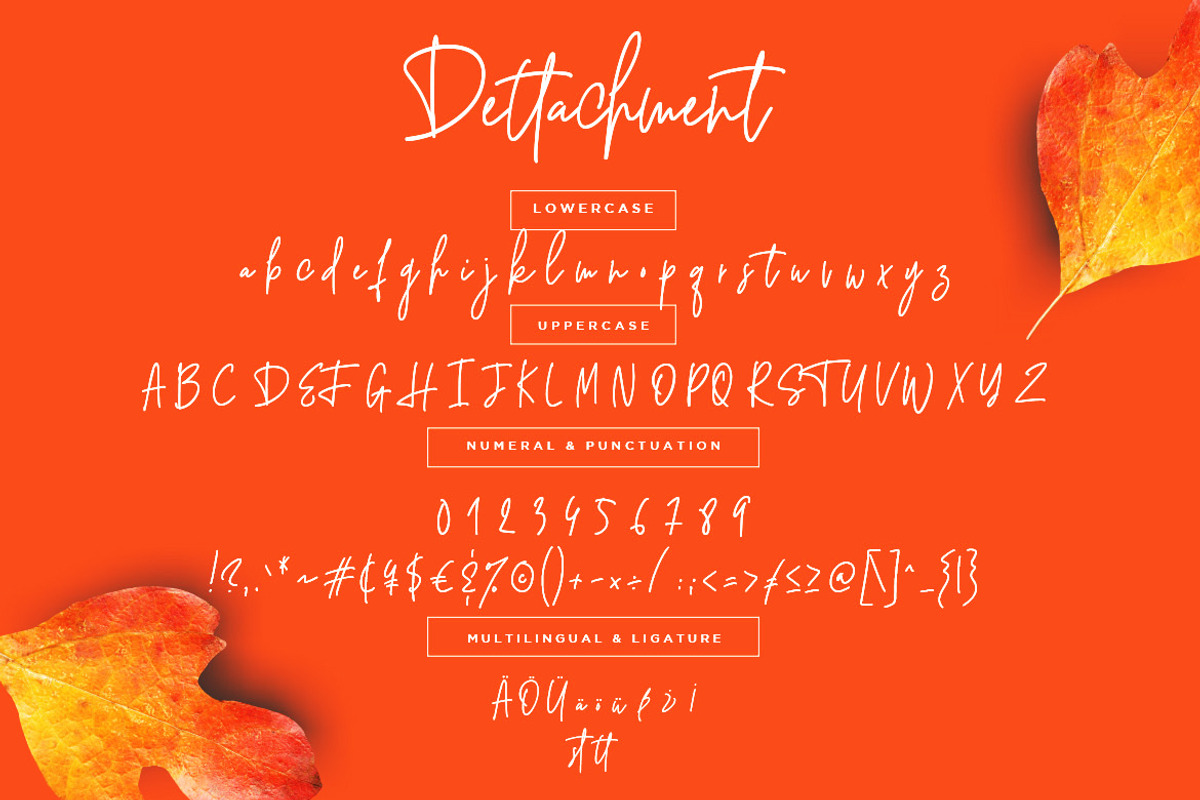 Dettachment
LOWERCASE
a b c d e f g h i j k l m n o p q r s t u v w x y z
UPPERCASE
A B C D E F G H I J K L M N O P Q R S T U V W X Y Z
NUMERAL & PUNCTUATION
0 1 2 3 4 5 6 7 8 9
! ? , . ` * ~ # ₵ ¥ $ € & % © ( ) + - × ÷ / : ; < = > ≠ ≤ ≥ @ [ \ ] ^ _ { | }
MULTILINGUAL & LIGATURE
Ä Ö Ü ä ö ü ß ¿ ¡
st tt